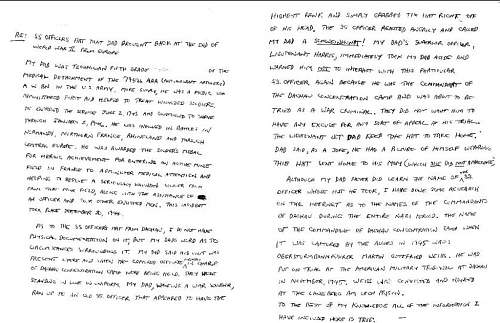 RE: SS OFFICERS HAT THAT DAD BROUGHT BACK AT THE END OF
WORLD WAR II FROM EUROPE
MY DAD WAS TECHNICIAN FIFTH GRADE OF THE
MEDICAL DETACHMENT OF THE 795th AAA (ANTIAIRCRAFT ARTILLERY)
A W BN IN THE U.S. ARMY. MORE SIMPLY, HE WAS A MEDIC WHO
ADMINISTERED FIRST AID HELPED TO TREAT WOUNDED SOLDIERS.
HE ENTERED THE SERVICE JUNE 2, 1943 AND CONTINUED TO SERVE
THROUGH JANUARY 2, 1946. HE WAS INVOLVED IN BATTLES IN
NORMANDY, NORTHERN FRANCE, RHINELAND AND
CENTRAL EUROPE. HE WAS AWARDED THE SOLDIER'S MEDAL
FOR HEROIC ACHIEVEMENT FOR ENTERING AN ACTIVE MINE
FIELD IN FRANCE TO ADMINISTER MEDICAL ATTENTION AND
HELPING TO RESCUE A SERIOUSLY WOUNDED SOLDIER FROM
THAT MINE FIELD, ALONG WITH THE ASSISTANCE OF
AN OFFICER AND TWO OTHER ENLISTED MEN. THIS INCIDENT
TOOK PLACE DECEMBER 1944.
AS TO THE SS OFFICERS HAT FROM DACHAU, I DO NOT HAVE
PHYSICAL DOCUMENTATION ON IT BUT MY DADS WORD AS TO
CIRCUMSTANCES SURROUNDING IT. MY DAD SAID HIS UNIT WAS
PRESENT WHERE AND WHEN THE CAPTURED OFFICERS IN CHARGE
OF DACHAU CONCENTRATION CAMP WERE BEING HELD. THEY WERE
STANDING IN LINE IN UNIFORM. MY DAD, WANTING A WAR SOUVENIR,
RAN UP TO AN OLD SS OFFICER THAT APPEARED TO HAVE THE
HIGHEST RANK AND SIMPLY GRABBED THE HAT RIGHT OFF
OF HIS HEAD. THE SS OFFICER REACTED ANGRILY AND CALLED
MY DAD A SCHWEINHUNT! MY DAD'S SUPERIOR OFFICER,
LIEUTENANT HARRIS, IMMEDIATELY TOOK MY DAD ASIDE AND
WARNED HIM NOT TO INTERACT WITH THIS PARTICULAR
SS OFFICER AGAIN BECAUSE HE WAS THE COMMANDANT OF
THE DACHAU CONCENTRATION CAMP AND WAS ABOUT TO BE
TRIED AS A WAR CRIMINAL. THEY DID NOT WANT HIM TO
HAVE ANY EXCUSE FOR ANY SORT OF APPEAL AT HIS TRIAL.
THE LIEUTENANT LET DAD KEEP THE HAT TO TAKE HOME.
DAD SAID, AS A JOKE, HE HAD A PICTURE OF HIMSELF WEARING
THIS HAT SENT HOME TO HIS MOM (WHICH SHE DID NOT APPRECIATE)
ALTHOUGH MY DAD NEVER DID LEARN THE NAME OF THE SS
OFFICER WHOSE HAT HE TOOK, I HAVE DONE SOME RESEARCH
ON THE INTERNET AS TO THE NAMES OF THE COMMANDANTS
OF DACHAU DURING THE ENTIRE NAZI PERIOD. THE NAME
OF THE COMMANDANT OF DACHAU CONCENTRATION CAMP WHEN
IT WAS CAPTURED BY THE ALLIES IN 1945 WAS:
OBERSTURMBANNFUHRER MARTIN GOTTFRIED WEISS. HE WAS
PUT ON TRIAL AT THE AMERICAN MILITARY TRIBUNAL AT DACHAU
IN NOVEMBER, 1945. WEISS WAS CONVICTED AND HANGED
AT THE LANDSBERG AM LECH PRISON.
TO THE BEST OF MY KNOWLEDGE ALL OF THE INFORMATION I
HAVE INCLUDED HERE IS TRUE.